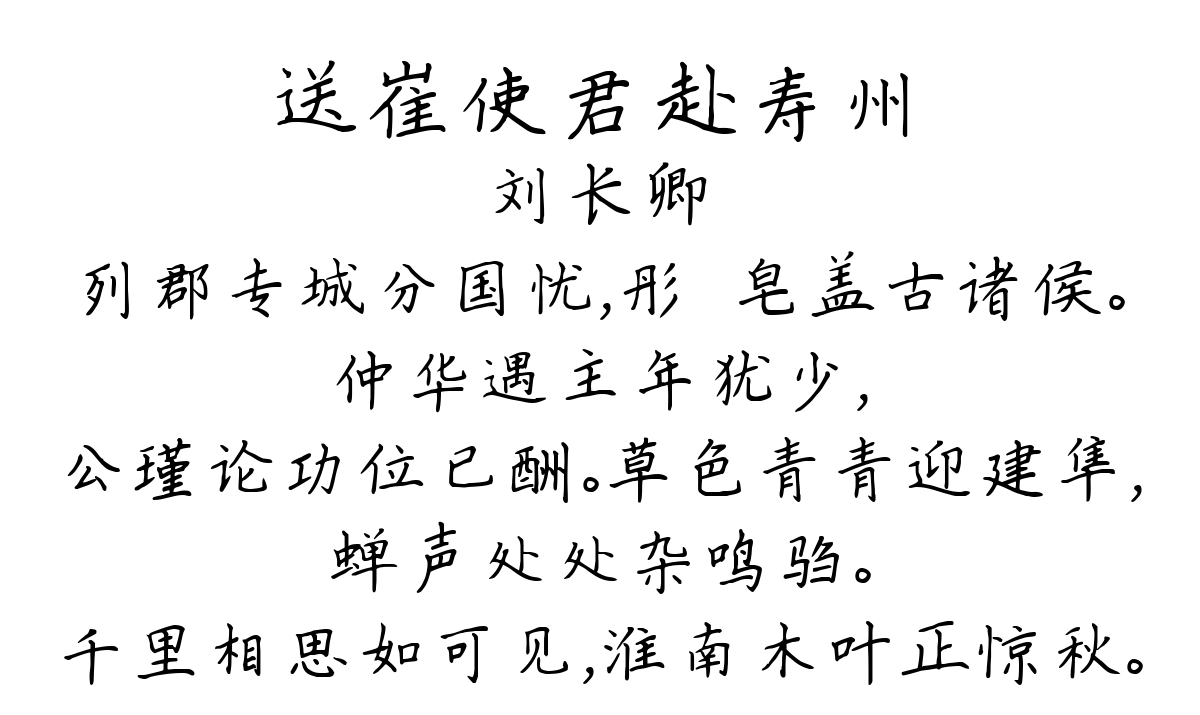 送崔使君赴寿州
刘长卿
列郡专城分国忧,彤 皂盖古诸侯。
仲华遇主年犹少,
公瑾论功位已酬。草色青青迎建隼,
蝉声处处杂鸣驺。
千里相思如可见,淮南木叶正惊秋。